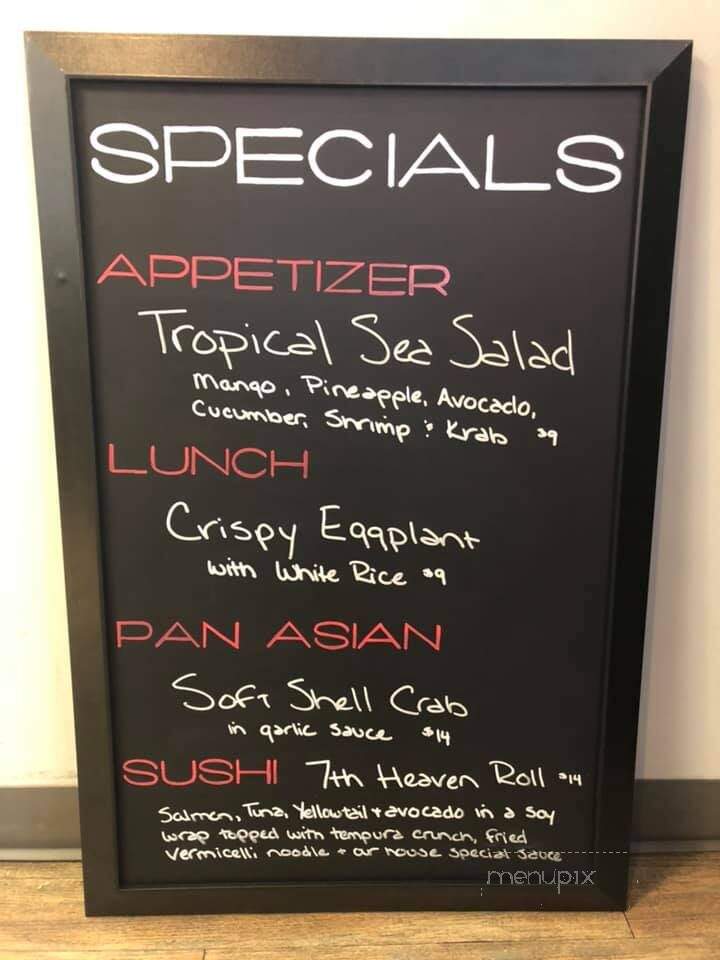 SPECIALS
APPETIZER
Tropical Sea Salad
Mango, Pineapple, Avocado,
Cucumber, Shrimp & Krab $9
LUNCH
Crispy Eggplant
with White Rice $9
PAN ASIAN
Soft Shell Crab
in garlic sauce $14
SUSHI 7th Heaven Roll $14
Salmon, Tuna, Yellowtail + avocado in a soy
wrap topped with tempura crunch, fried
vermicelli noodle + our house special sauce
menupix